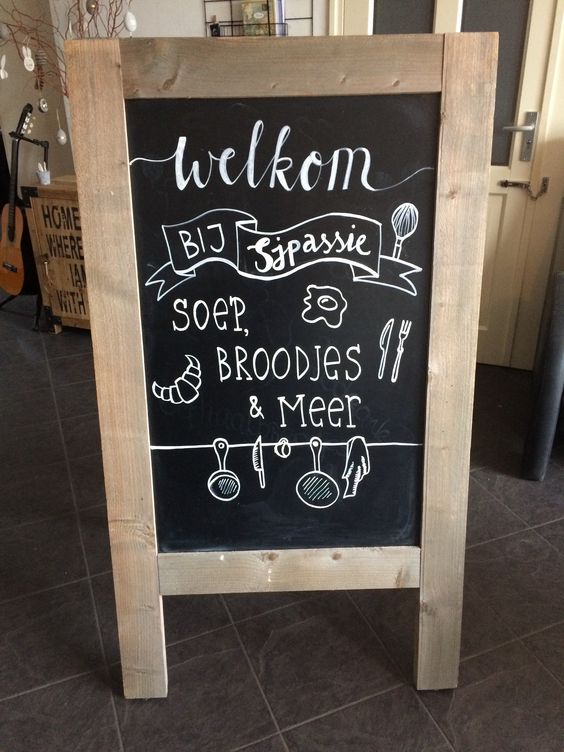 welkom
BIJ Sjpassie
SOEP,
BROODJES
& MEER
HOME
WHERE
IAM
WITH